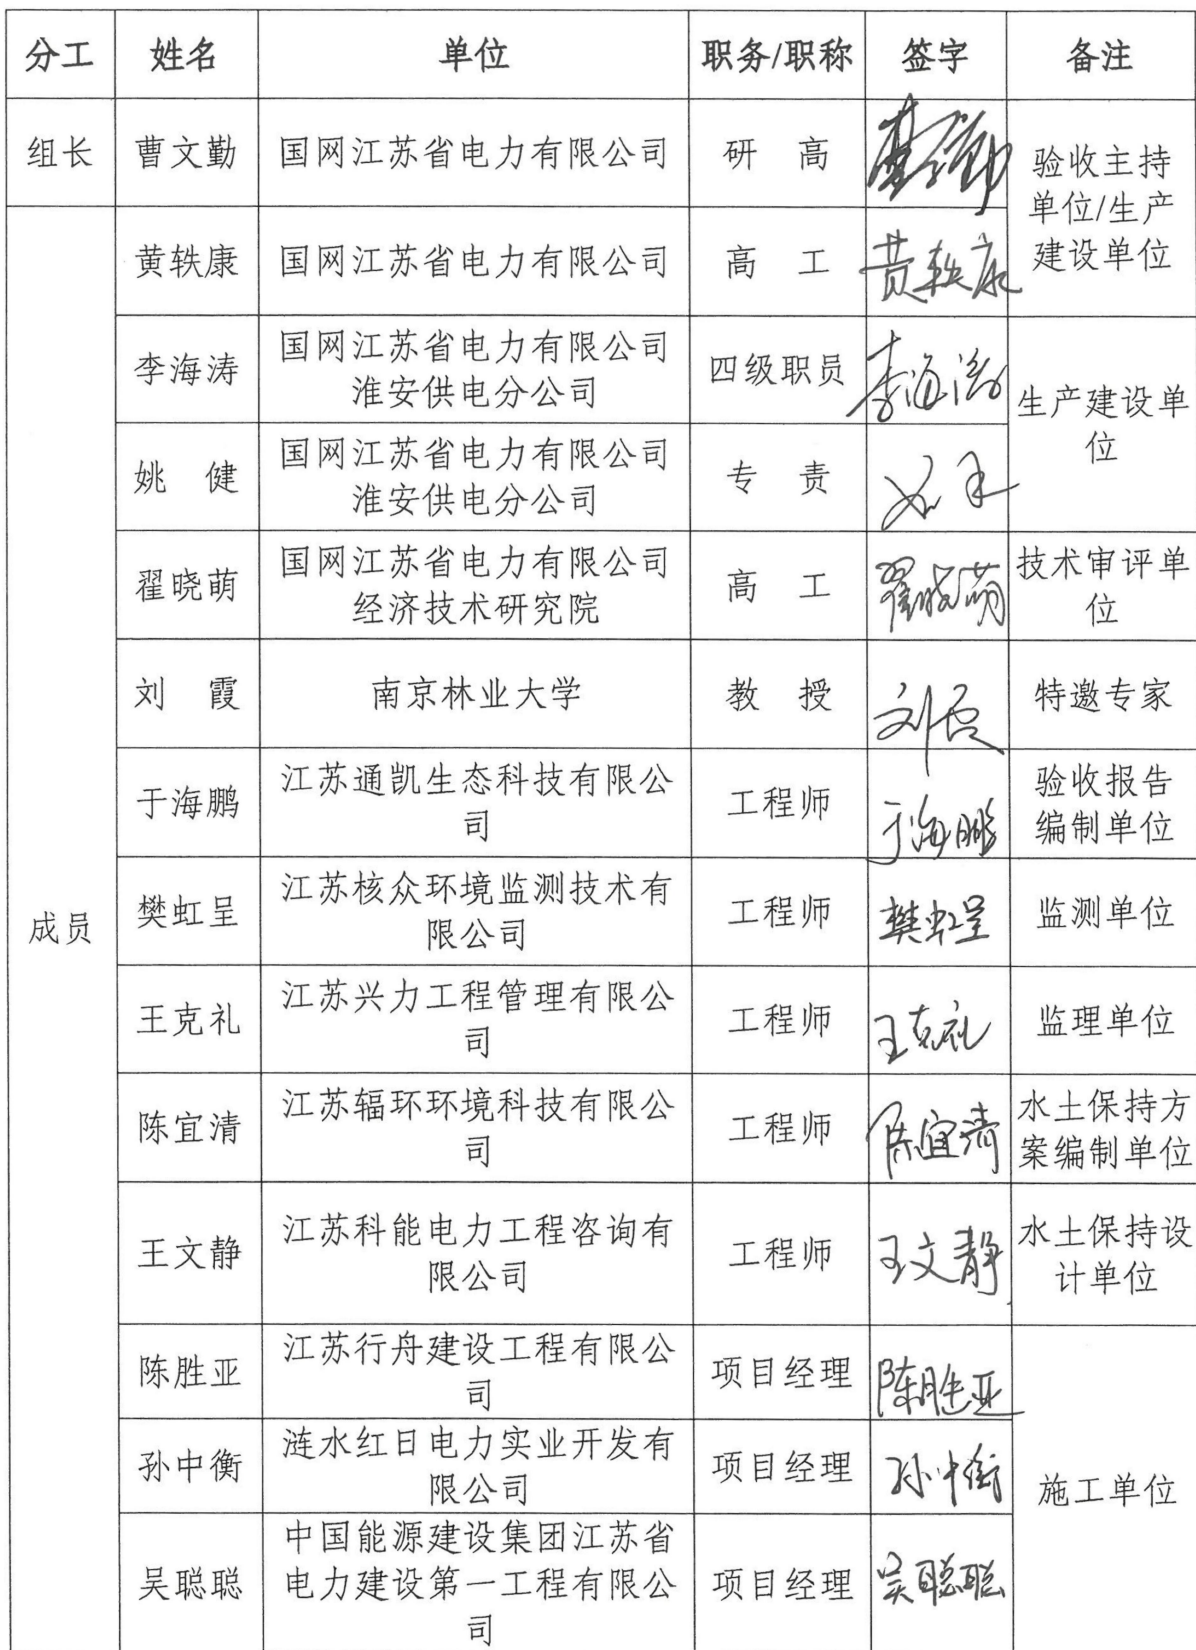 分工 姓名 单位 职务/职称 签字 备注
组长 曹文勤 国网江苏省电力有限公司 研 高 曹文勤
验收主持
单位/生产
建设单位
成员
黄轶康 国网江苏省电力有限公司 高 工 黄轶康
李海涛 国网江苏省电力有限公司
淮安供电分公司 四级职员 李海涛
生产建设单
位
姚 健 国网江苏省电力有限公司
淮安供电分公司 专 责
翟晓萌 国网江苏省电力有限公司
经济技术研究院 高 工 翟晓萌 技术审评单
位
刘 霞 南京林业大学 教 授 刘霞 特邀专家
于海鹏 江苏通凯生态科技有限公
司 工程师 于海鹏 验收报告
编制单位
樊虹呈 江苏核众环境监测技术有
限公司 工程师 樊虹呈 监测单位
王克礼 江苏兴力工程管理有限公
司 工程师 王克礼 监理单位
陈宜清 江苏辐环环境科技有限公
司 工程师 陈宜清 水土保持方
案编制单位
王文静 江苏科能电力工程咨询有
限公司 工程师 王文静 水土保持设
计单位
陈胜亚 江苏行舟建设工程有限公
司 项目经理 陈胜亚
孙中衡 涟水红日电力实业开发有
限公司 项目经理 孙中衡
施工单位
吴聪聪 中国能源建设集团江苏省
电力建设第一工程有限公
司 项目经理 吴聪聪